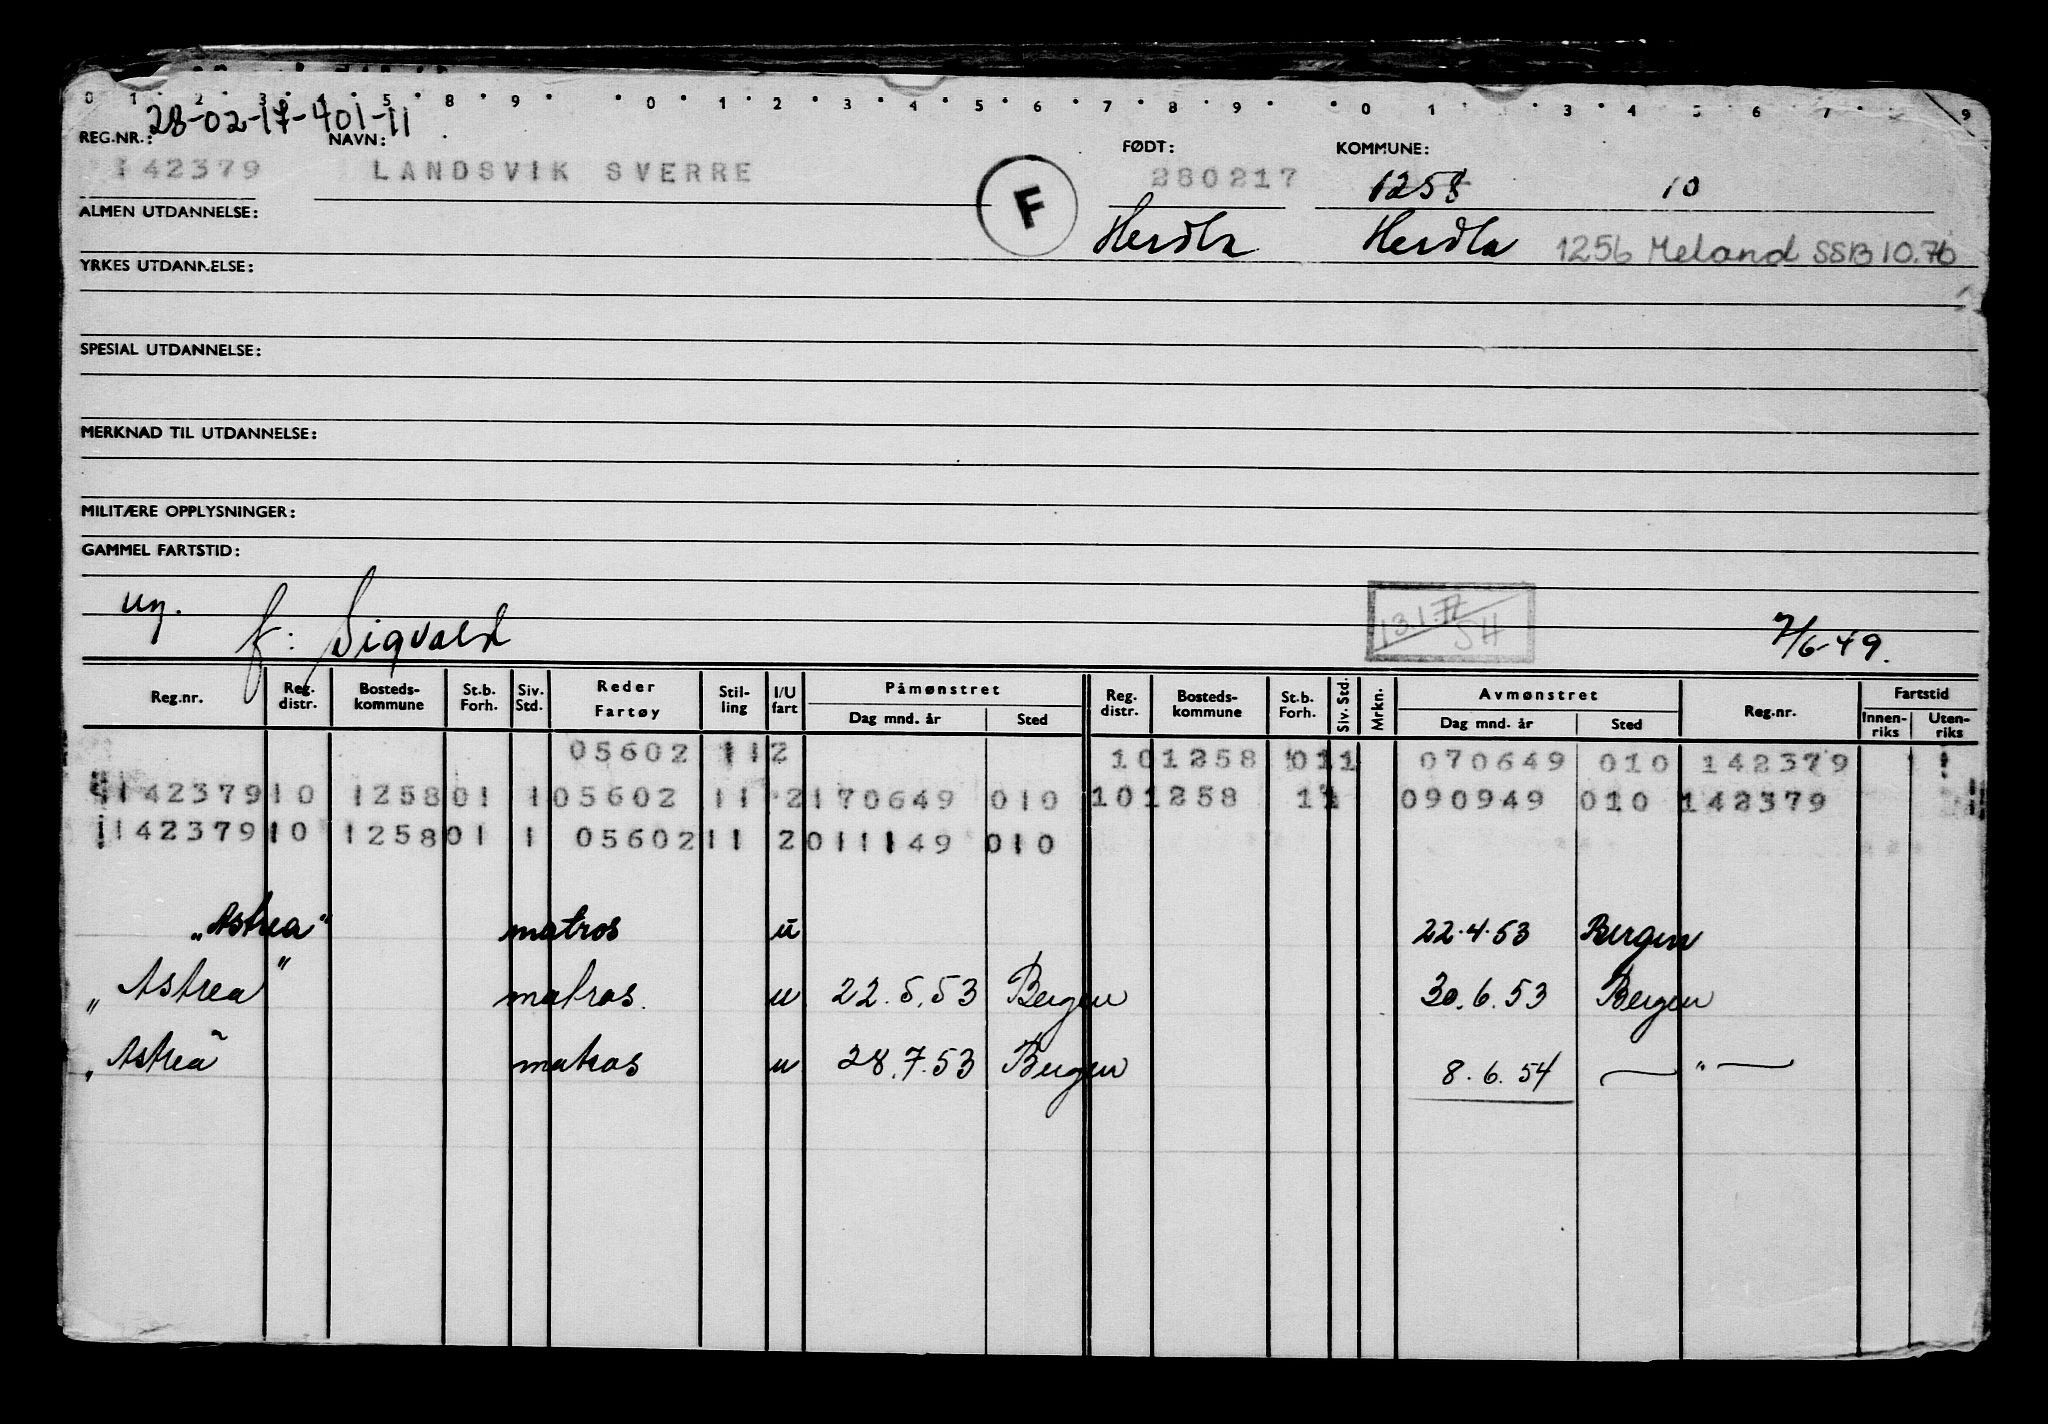 0 1 2 3 4 5 8 9 0 1 2 3 4 5 6 7 8 9 0 1 2 3 4 5 6 7 9
28-02-17-401-11
REG.NR.: NAVN: FØDT: KOMMUNE:
142379 LANDSVIK SVERRE F 280217 1258 10
ALMEN UTDANNELSE: Herdla Herdla 1256 Meland SSB 10.76
YRKES UTDANNELSE:
SPESIAL UTDANNELSE:
MERKNAD TIL UTDANNELSE:
MILITÆRE OPPLYSNINGER:
GAMMEL FARTSTID:
ug. 13.1.77 SH
f: Sigvald 7/6-49.
Reg.nr. Reg. distr. Bosteds-kommune St.b. Forh. Siv. Std. Reder Fartøy Stil-ling I/U fart Påmønstret Reg. distr. Bosteds-kommune St.b. Forh. Siv. Std. Mrkn. Avmønstret Reg.nr. Fartstid
Dag mnd. år Sted Dag mnd. år Sted Innen-riks Uten-riks
05602 11 2 10 1258 01 1 070649 010 142379
142379 10 1258 01 1 05602 11 2 170649 010 10 1258 1 1 090949 010 142379
142379 10 1258 01 1 05602 11 2 011149 010
„Astrea" matros u 22.4.53 Bergen
„Astrea" matros. u 22.5.53 Bergen 30.6.53 Bergen
„Astrea" matros u 28.7.53 Bergen 8.6.54 — " —